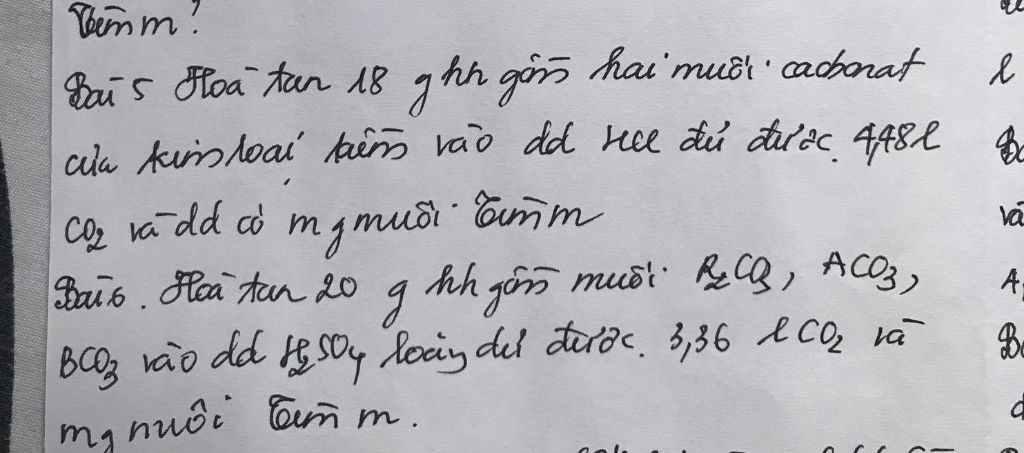 Tìm m?
Bài 5 Hoà tan 18 g hh gồm hai muối cacbonat
của kim loại kiềm vào dd HCl đủ được 4,48l
CO2 và dd có m g muối. Tìm m
Bài 6. Hoà tan 20 g hh gồm muối R2CO3, ACO3,
BCO3 vào dd H2SO4 loãng đủ được. 3,36 l CO2 và
mg muối Tìm m.